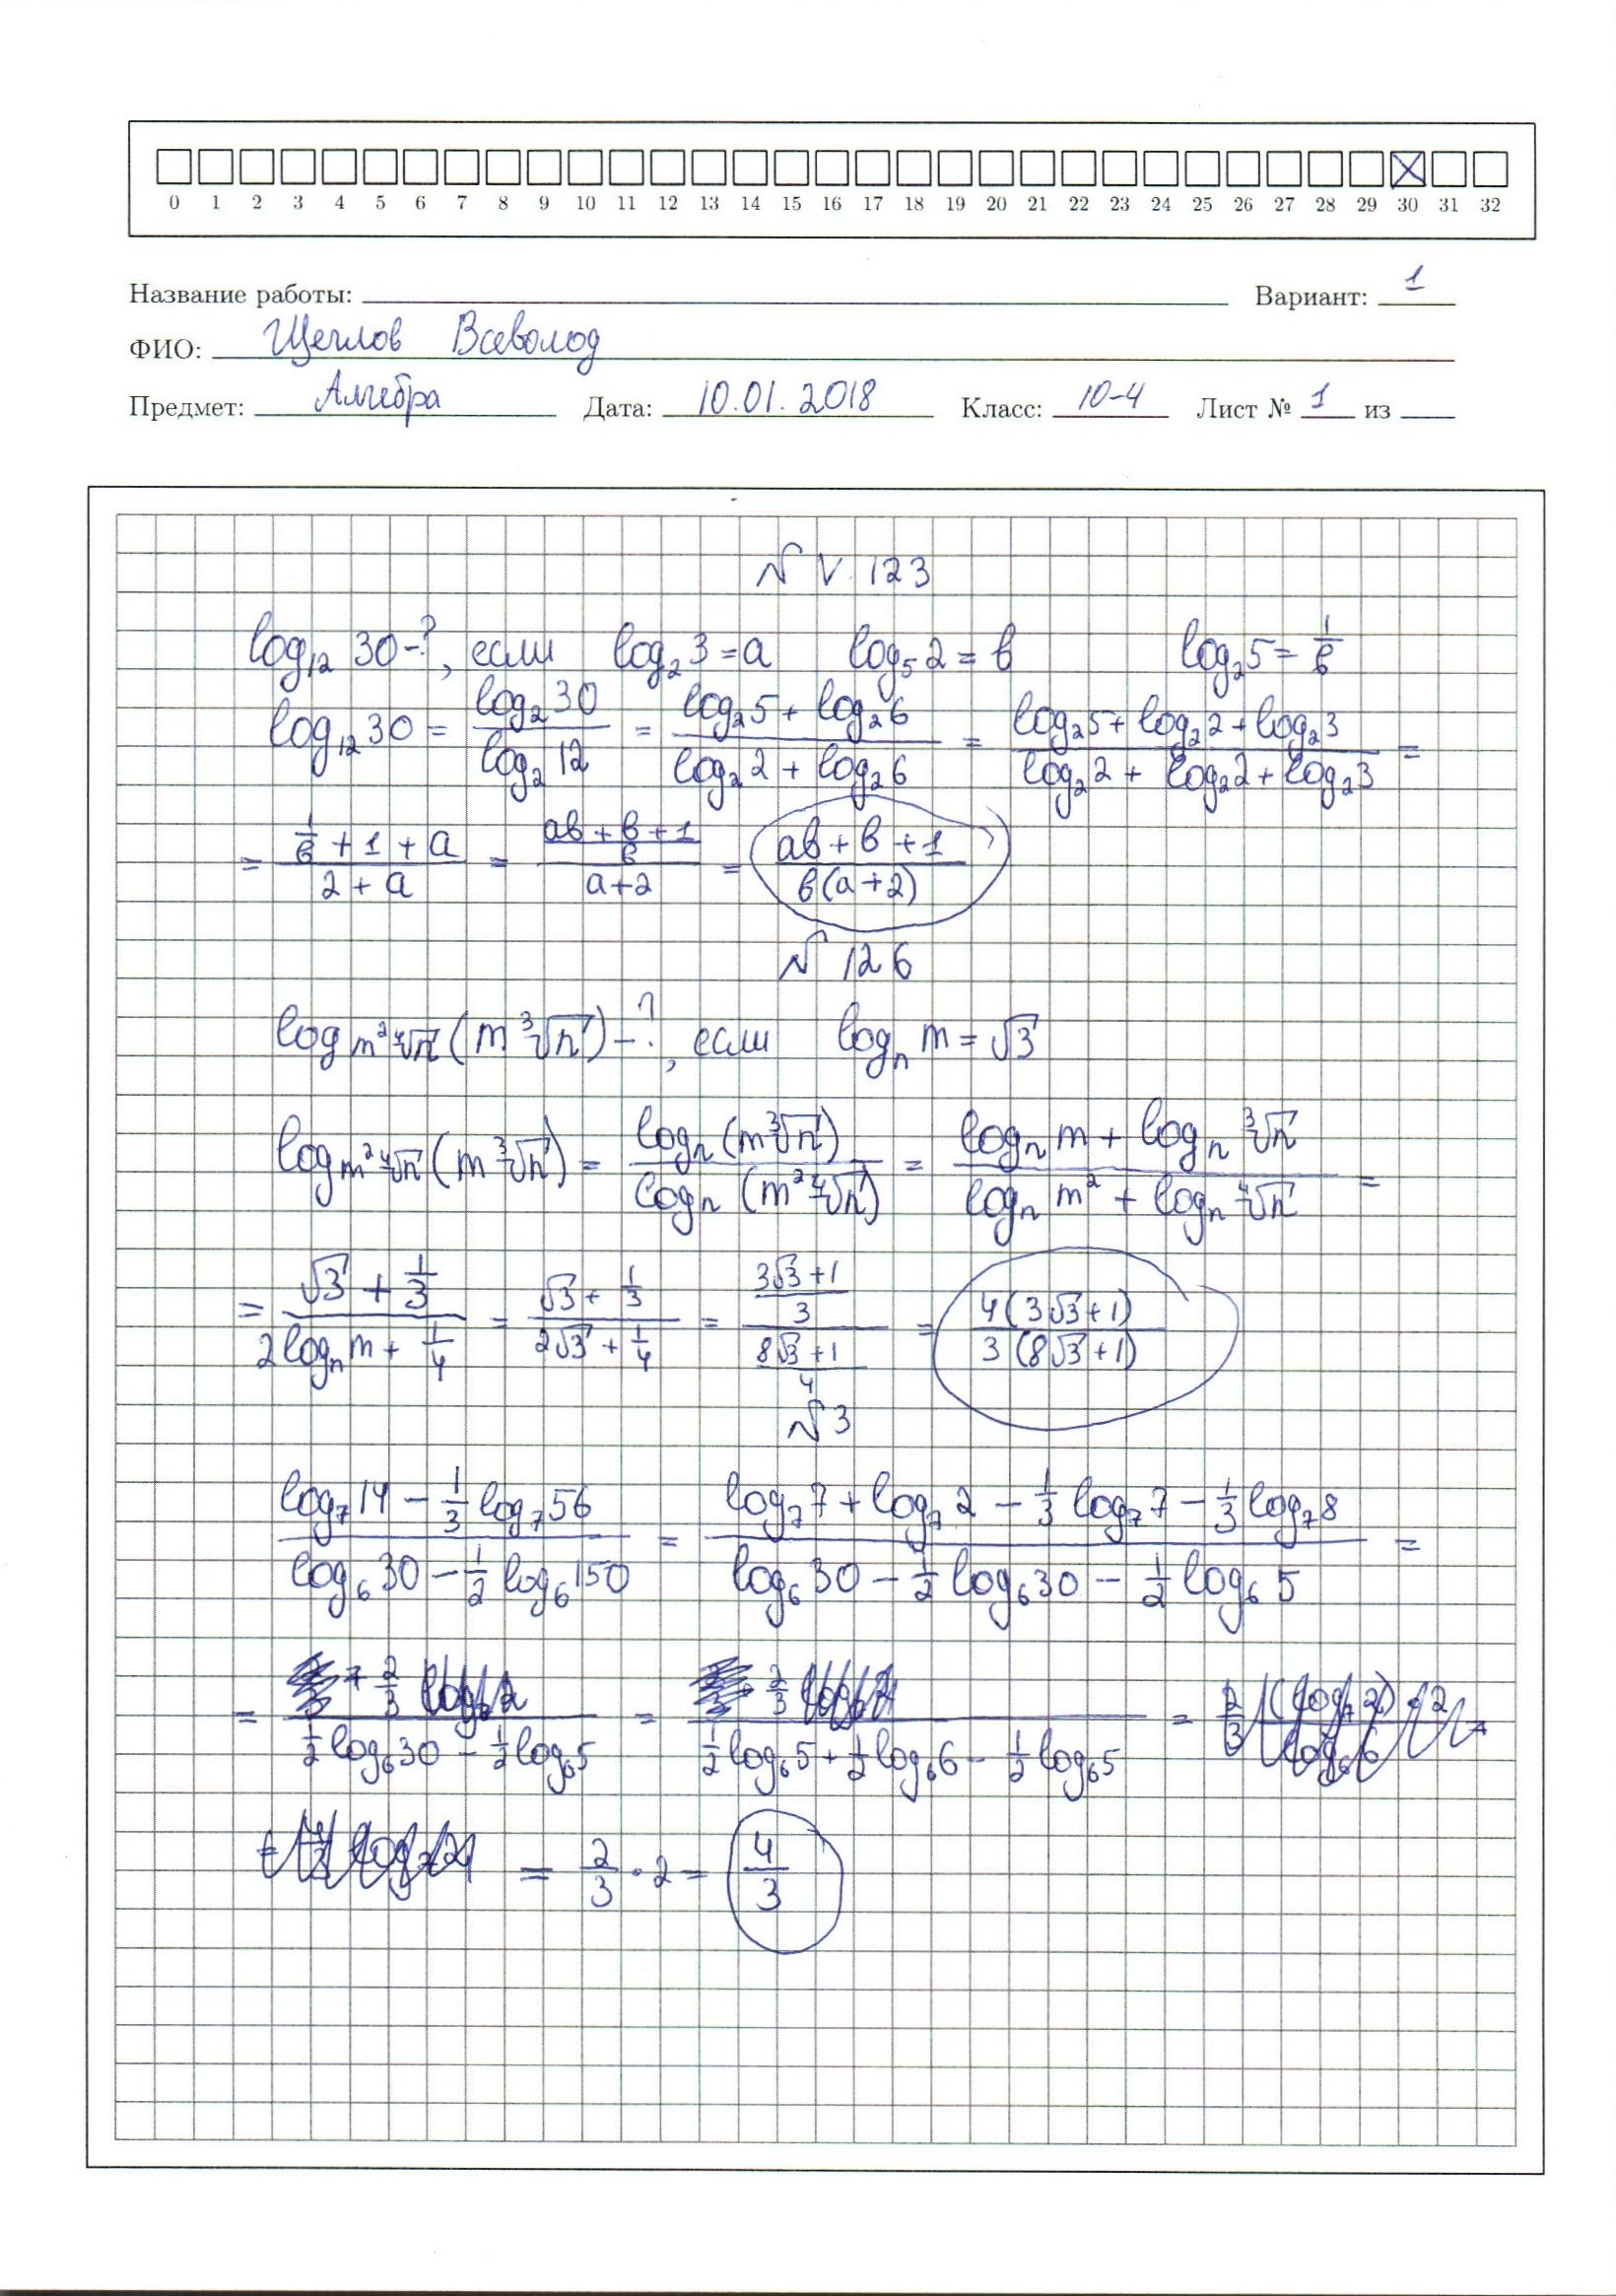 0 1 2 3 4 5 6 7 8 9 10 11 12 13 14 15 16 17 18 19 20 21 22 23 24 25 26 27 28 29 30 31 32
Название работы: Вариант: 1
ФИО: Щеглов Всеволод
Предмет: Алгебра Дата: 10.01.2018 Класс: 10-4 Лист № 1 из
№ V. 123
log₁₂ 30 - ?, если log₂ 3 = a log₅ 2 = b log₂ 5 = 1/b
log₁₂ 30 = (log₂ 30)/(log₂ 12) = (log₂ 5 + log₂ 6)/(log₂ 2 + log₂ 6) = (log₂ 5 + log₂ 2 + log₂ 3)/(log₂ 2 + log₂ 2 + log₂ 3) =
= (1/b + 1 + a)/(2 + a) = ((ab + b + 1)/b)/(a + 2) = (ab + b + 1)/(b(a + 2))
№ 126
log_{m²∜n} (m ∛n) - ?, если logₙ m = √3
log_{m²∜n} (m ∛n) = (logₙ (m ∛n))/(logₙ (m² ∜n)) = (logₙ m + logₙ ∛n)/(logₙ m² + logₙ ∜n) =
= (√3 + 1/3)/(2 logₙ m + 1/4) = (√3 + 1/3)/(2√3 + 1/4) = ((3√3 + 1)/3)/((8√3 + 1)/4) = (4(3√3 + 1))/(3(8√3 + 1))
№ 3
(log₇ 14 - 1/3 log₇ 56)/(log₆ 30 - 1/2 log₆ 150) = (log₇ 7 + log₇ 2 - 1/3 log₇ 7 - 1/3 log₇ 8)/(log₆ 30 - 1/2 log₆ 30 - 1/2 log₆ 5) =
= (2/3)/(1/2 log₆ 30 - 1/2 log₆ 5) = (2/3)/(1/2 log₆ 5 + 1/2 log₆ 6 - 1/2 log₆ 5) =
= 2/3 · 2 = 4/3